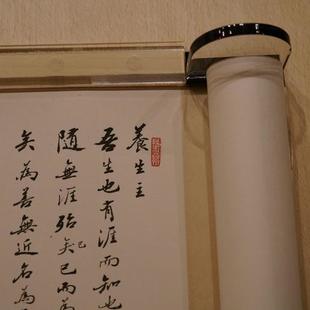 養生主
吾生也有涯而知也
隨無涯殆矣已已而為
矣為善無近名為